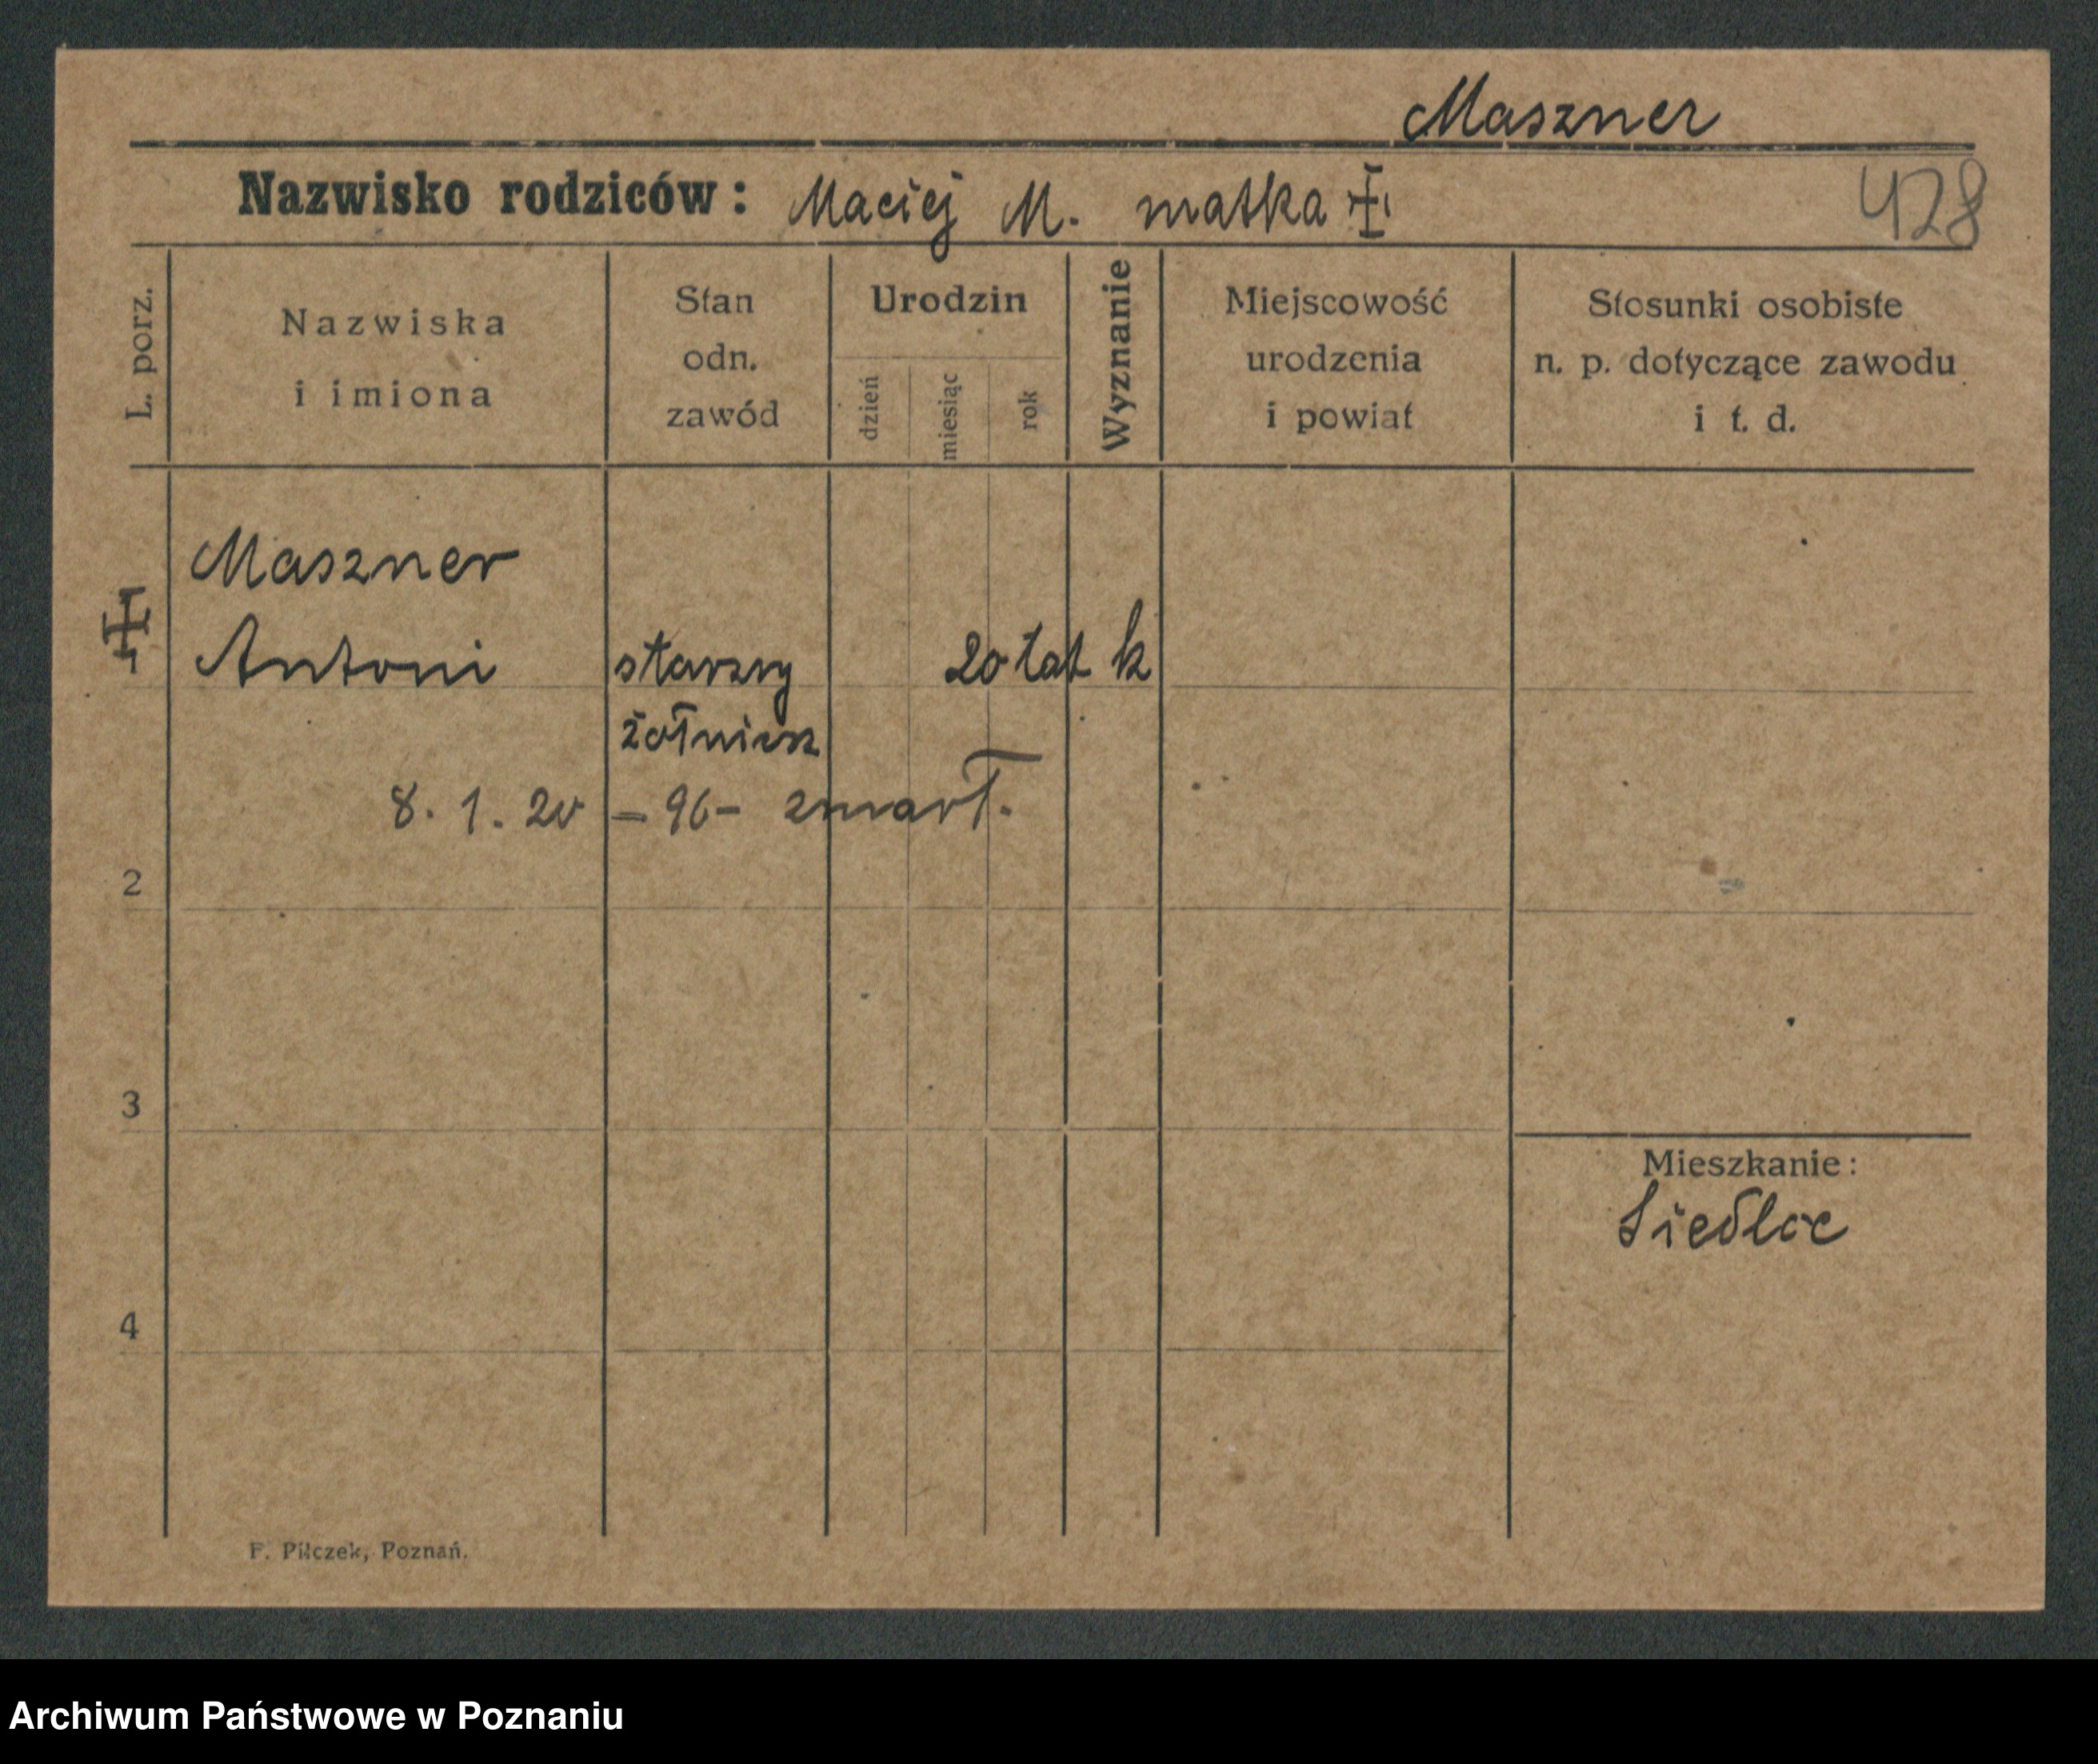 Maszner
Nazwisko rodziców: Maciej M. matka ‡
428
L. porz.
Nazwiska
i imiona
Stan
odn.
zawód
Urodzin
dzień
miesiąc
rok
Wyznanie
Miejscowość
urodzenia
i powiat
Stosunki osobiste
n. p. dotyczące zawodu
i t. d.
Maszner
Antoni starszy 20 lat k
żołnierz
8. 1. 20 - 96 - zmarł.
2
3
Mieszkanie:
Siedlce
4
F. Pilczek, Poznań.
Archiwum Państwowe w Poznaniu